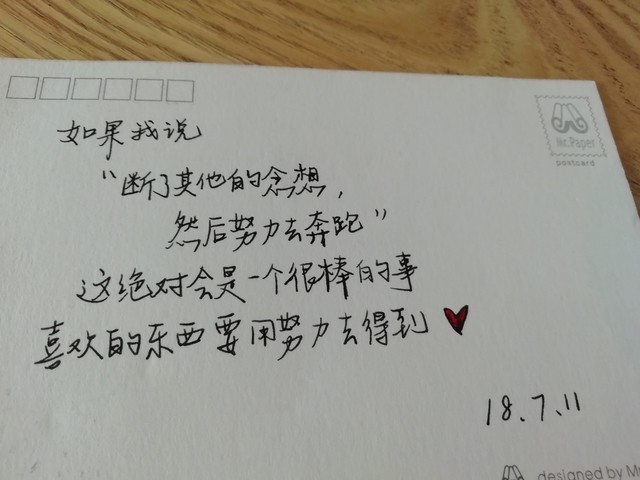 Mr.Paper
postcard
如果我说
“断了其他的念想，
然后努力去奔跑”
这绝对会是一个很棒的事
喜欢的东西要用努力去得到
18.7.11
designed by M